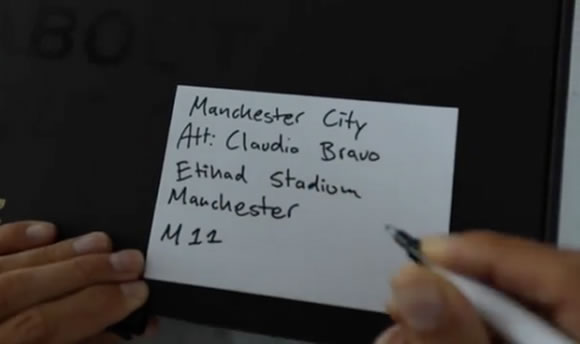 Manchester City
Att: Claudio Bravo
Etihad Stadium
Manchester
M11